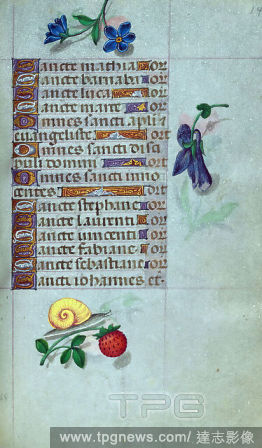 Sancte mathia or
Sancte barnaba or
Sancte luca or
Sancte marce or
Omnes sancti apli ⁊
euangeliste or
Omnes sancti disci
puli domini or
Omnes sancti inno
centes ort
Sancte stephane or
Sancte laurenti or
Sancte uincenti or
Sancte fabiane or
Sancte sebastiane or
Sancti iohannes et
TPG
www.tpgnews.com/達志影像